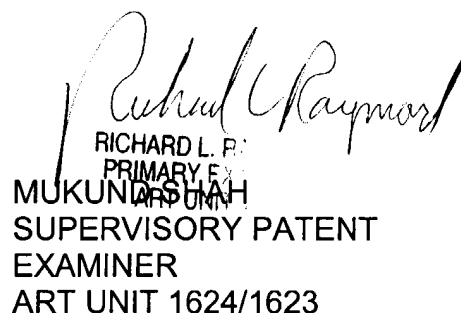 Richard L Raymond
RICHARD L.
PRIMARY
ART UNIT
MUKUND SHAH
SUPERVISORY PATENT
EXAMINER
ART UNIT 1624/1623